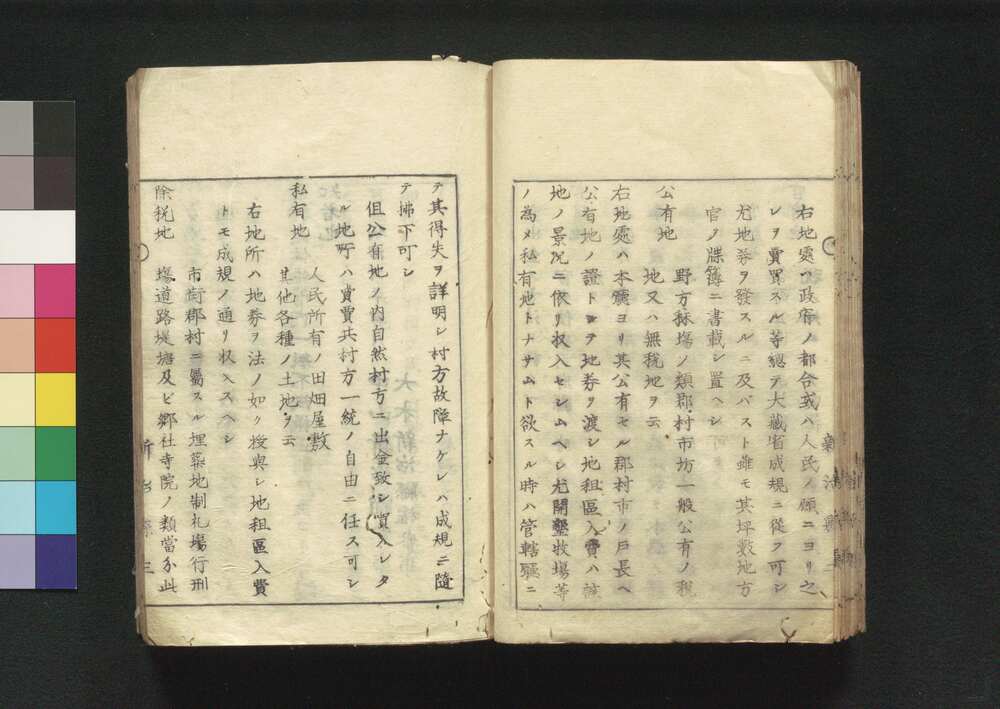 右地處ハ政府ノ都合或ハ人民ノ願ニヨリ之
レヲ賣買スル等總テ大藏省成規ニ從フ可シ
尤地券ヲ發スルニ及バスト雖モ其坪数地方
官ノ牒簿ニ書載シ置ヘシ
公有地
野方秣塲ノ類郡村市坊一般公有ノ税
地又ハ無税地ヲ云
右地處ハ本廳ヨリ其公有セル郡村市ノ戸長ヘ
公有地ノ證トシテ地券ヲ渡シ地租區入費ハ該
地ノ景况ニ依リ収入セシムヘシ尤開墾牧場等
ノ為メ私有地トナサムト欲スル時ハ管轄廳ニ
テ其得失ヲ詳明シ村方故障ナケレハ成規ニ隨
テ拂下可シ
但公有地ノ内自然村方ニ出金致シ買入レタ
ル地所ハ賣買共村方一統ノ自由ニ任ス可シ
私有地
人民所有ノ田畑屋敷
其他各種ノ土地ヲ云
右地所ハ地券ヲ法ノ如ク授與シ地租區入費
トモ成規ノ通リ収入スヘシ
除税地
市街郡村ニ屬スル埋葬地制札塲行刑
塲道路堤塘及ビ郷社寺院ノ類當分此